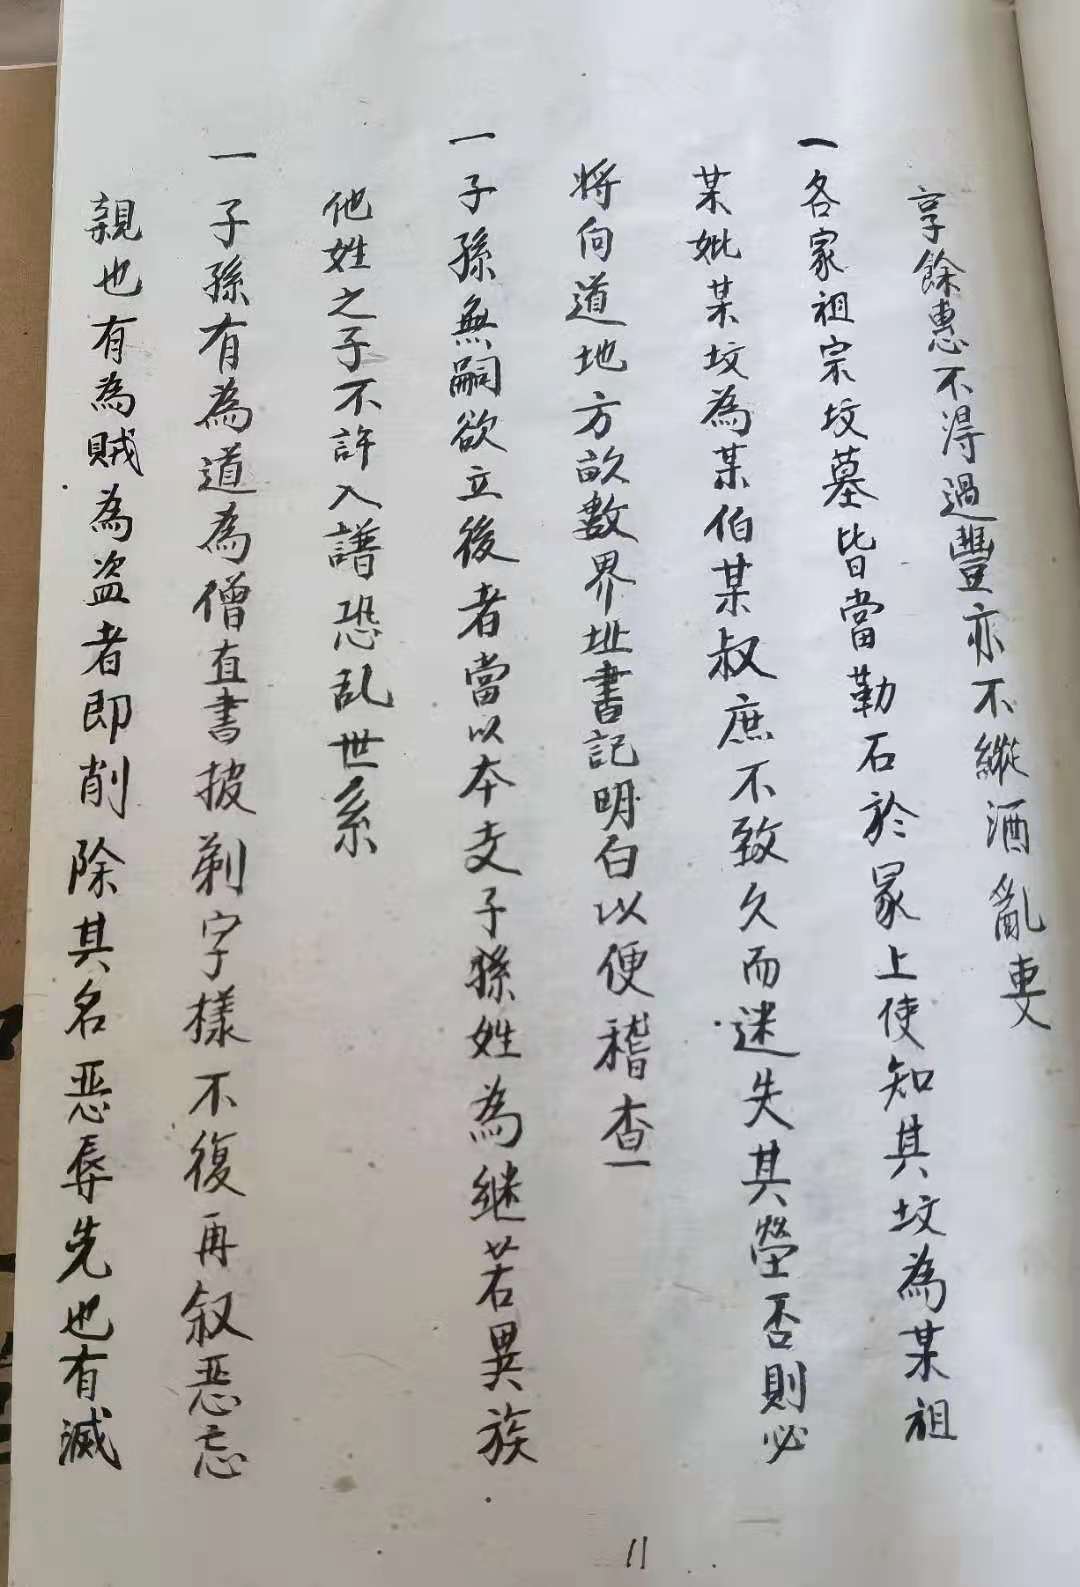 享餘惠不得過豐亦不縱酒亂叓
一各家祖宗坟墓皆當勒石於冢上使知其坟為某祖
某妣某坟為某伯某叔庶不致久而迷失其塋否則必
將向道地方畝數界址書記明白以便稽查
一子孫無嗣欲立後者當以本支子孫姓為继若異族
他姓之子不許入譜恐乱世系
一子孫有為道為僧直書披剃字樣不復再叙恶忘
親也有為賊為盗者即削除其名恶辱先也有滅
11